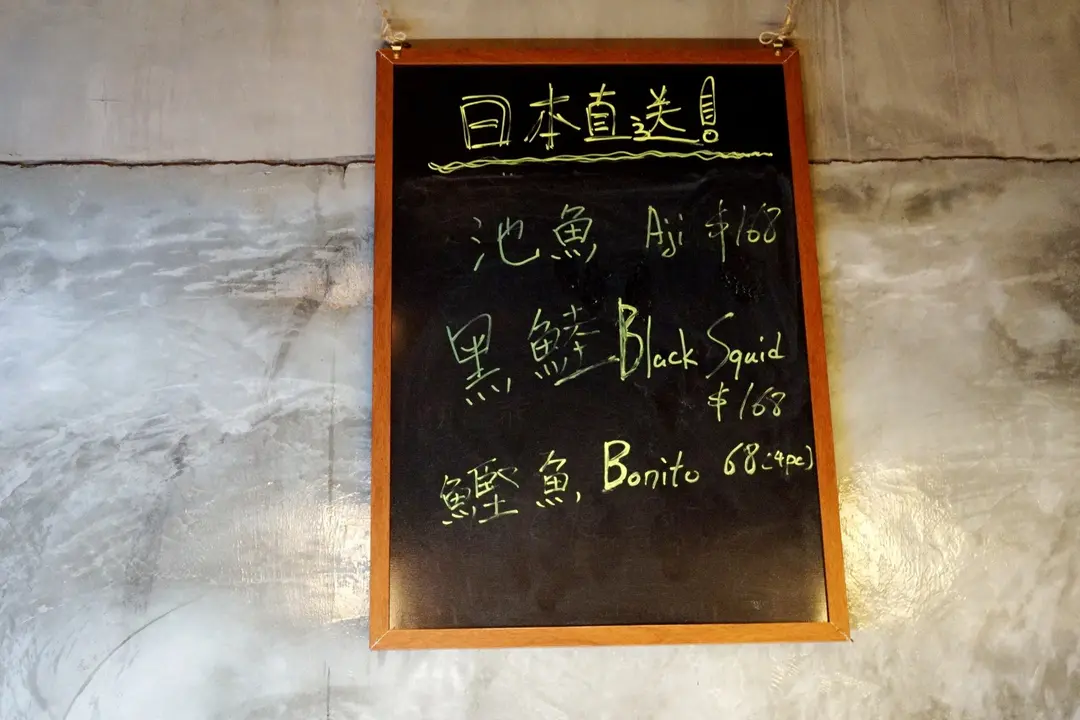 日本直送!
池魚 Aji $168
黑鯥 Black Squid
$168
鰹魚 Bonito 68(4pc)